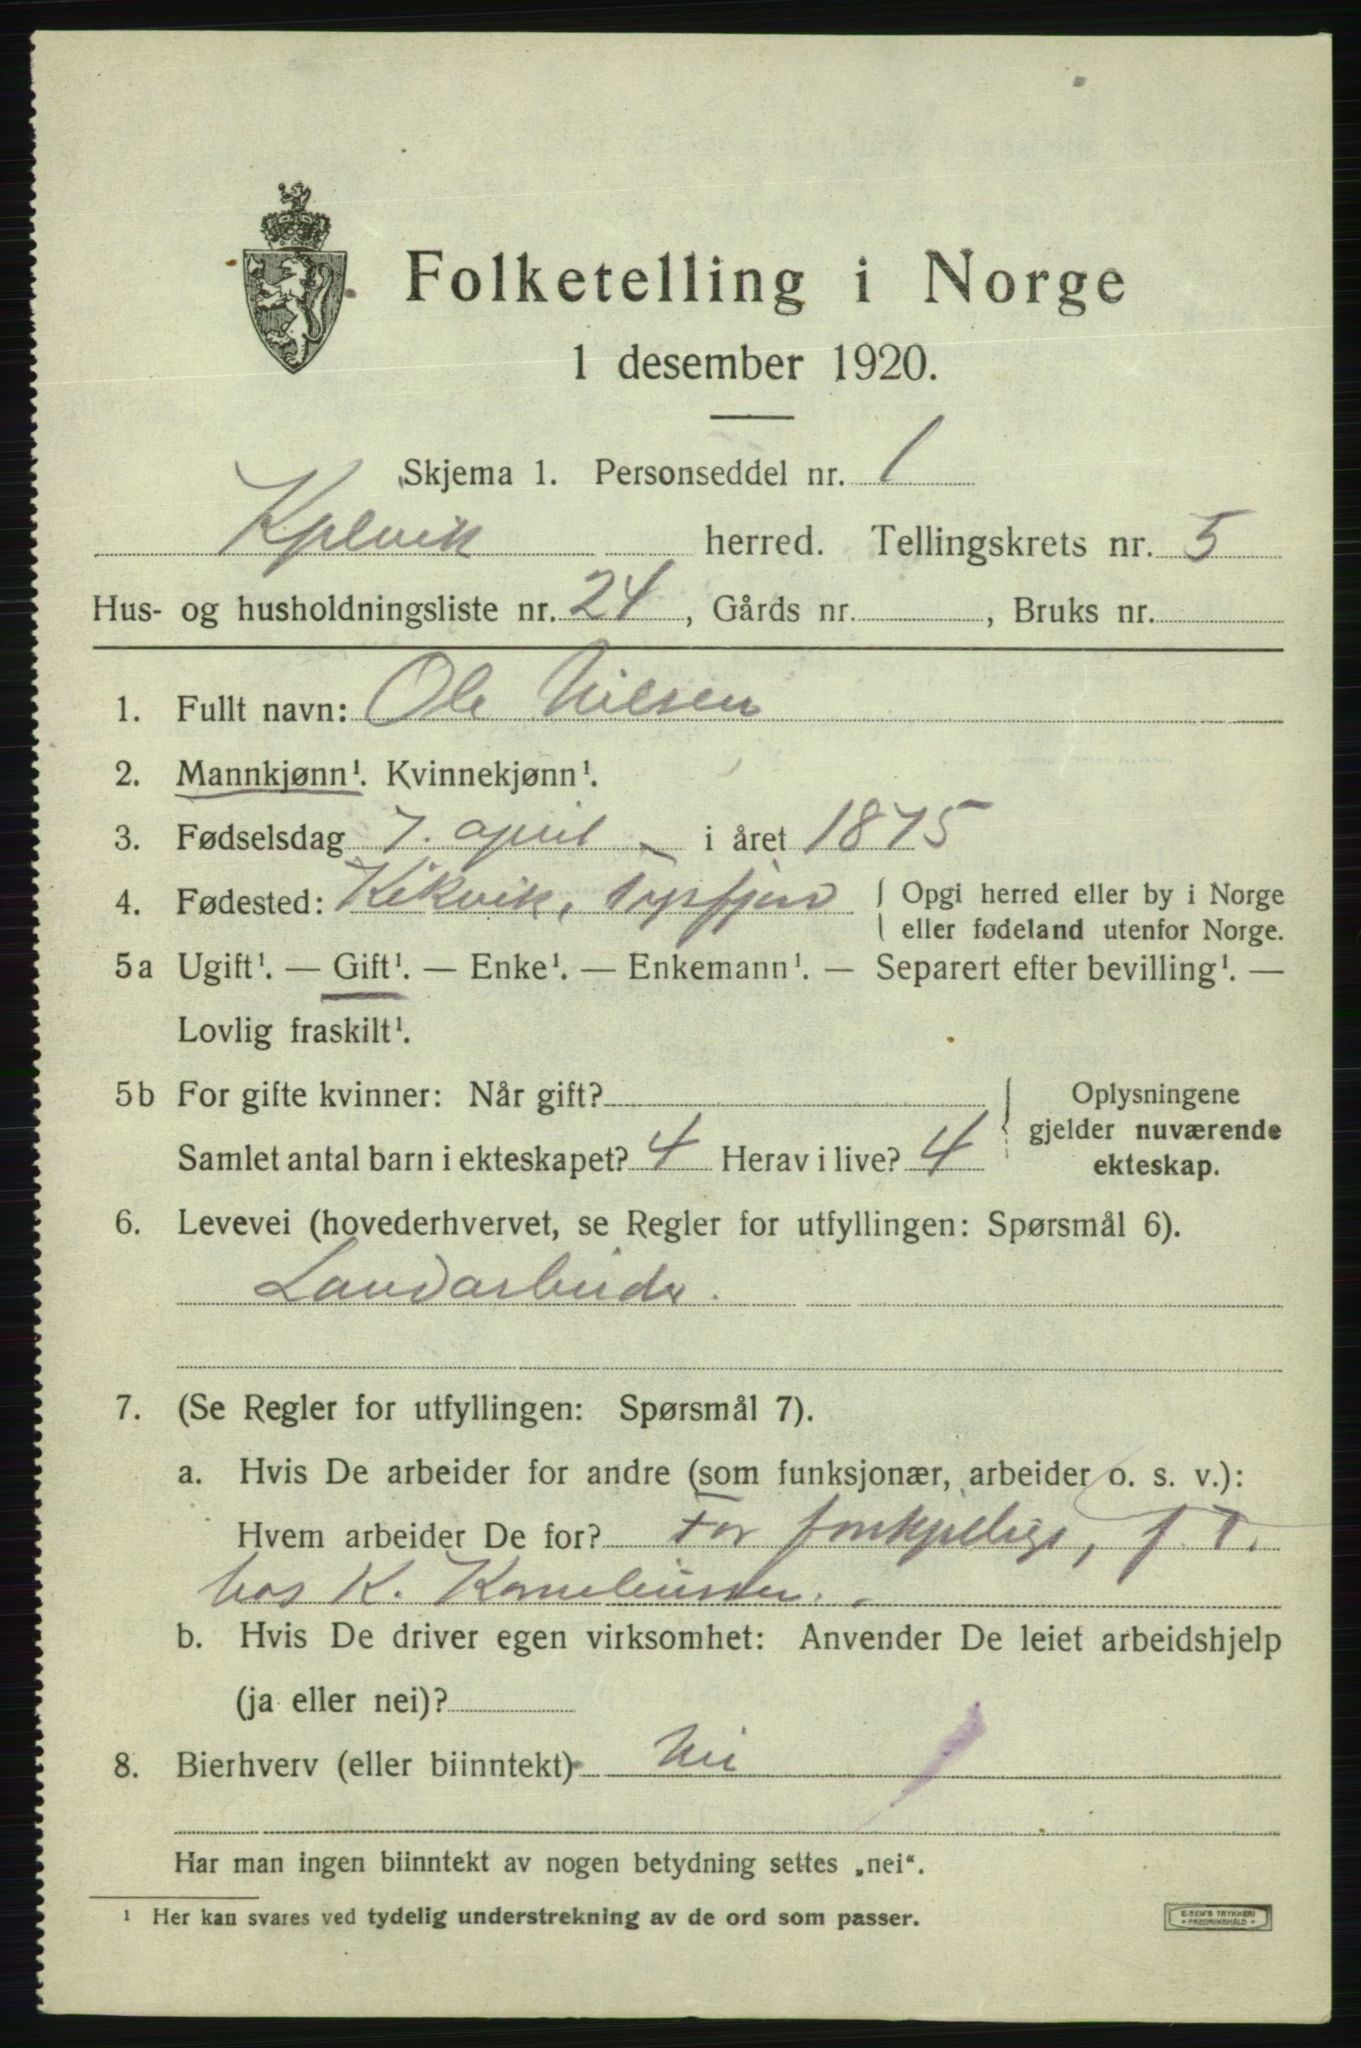 Folketelling i Norge
1 desember 1920.
Skjema 1. Personseddel nr. 1
Kjelvik herred. Tellingskrets nr. 5
Hus- og husholdningsliste nr. 24, Gårds nr. , Bruks nr.
1. Fullt navn: Ole Nilsen
2. Mannkjønn¹. Kvinnekjønn¹.
3. Fødselsdag 7. april i året 1875
4. Fødested: Kikvik, Tysfjord
Opgi herred eller by i Norge
eller fødeland utenfor Norge.
5a Ugift¹. — Gift¹. — Enke¹. — Enkemann¹. — Separert efter bevilling¹. —
Lovlig fraskilt¹.
5b For gifte kvinner: Når gift?
Samlet antal barn i ekteskapet? 4 Herav i live? 4
Oplysningene
gjelder nuværende
ekteskap.
6. Levevei (hovederhvervet, se Regler for utfyllingen: Spørsmål 6).
Landarbeider.
7. (Se Regler for utfyllingen: Spørsmål 7).
a. Hvis De arbeider for andre (som funksjonær, arbeider o. s. v.):
Hvem arbeider De for? For forskjellige, f. T.
hos K. Korneliussen.
b. Hvis De driver egen virksomhet: Anvender De leiet arbeidshjelp
(ja eller nei)?
8. Bierhverv (eller biinntekt) Nei
Har man ingen biinntekt av nogen betydning settes „nei“.
¹ Her kan svares ved tydelig understrekning av de ord som passer.
E. SEM'S TRYKKERI
FREDRIKSHALD